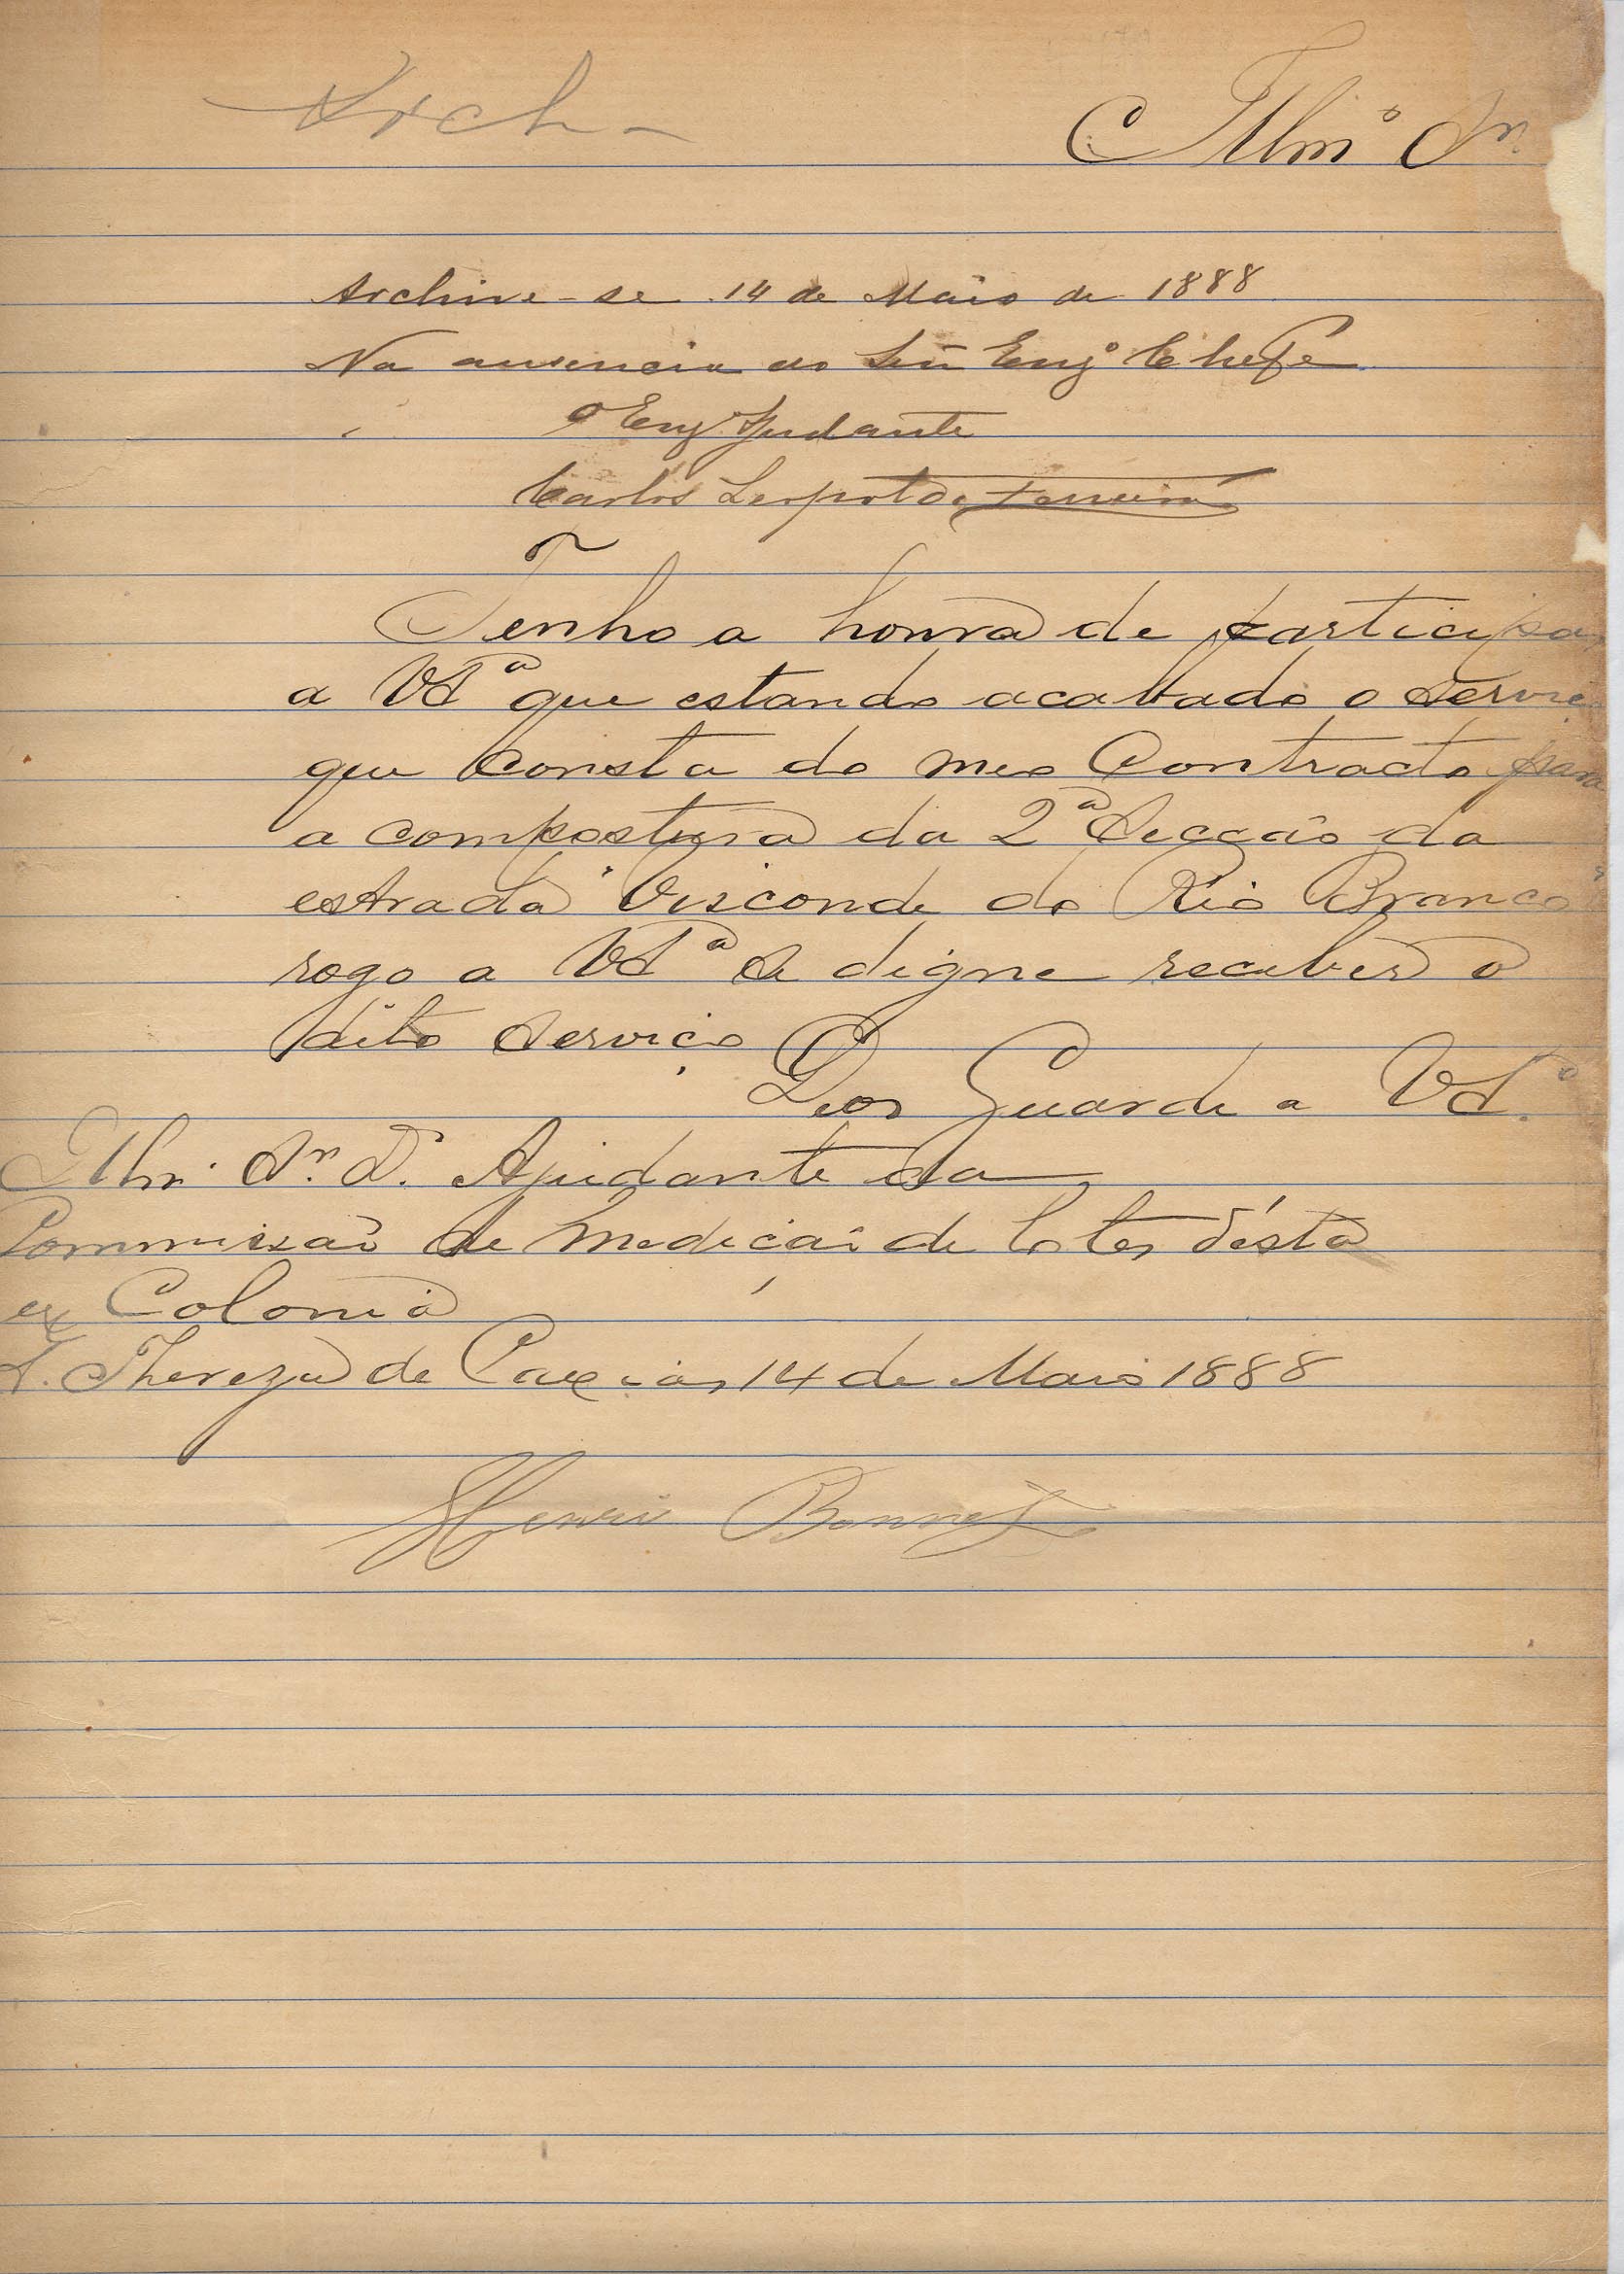 Arch -
Illmº Snr.
Archive-se 14 de Maio de 1888
Na ausencia do Señ Engº Chefe
o Eng Ajudante
Carlos Leopoldo Ferreira
Tenho a honra de participar
a VSª que estando acabado o Servi
que Consta do meo Contracto para
a compostura da 2ª Secção da
estrada "Visconde do Rio Branco"
rogo a VSª Se digne receber o
dito Serviço
Deos Guarde a VSª.
Illm. Snr. Dr. Ajudante da
Commissão de Medição de lotes d'ésta
ex Colonia
S. Thereza de Caxias 14 de Maio 1888
Henri Bonnet